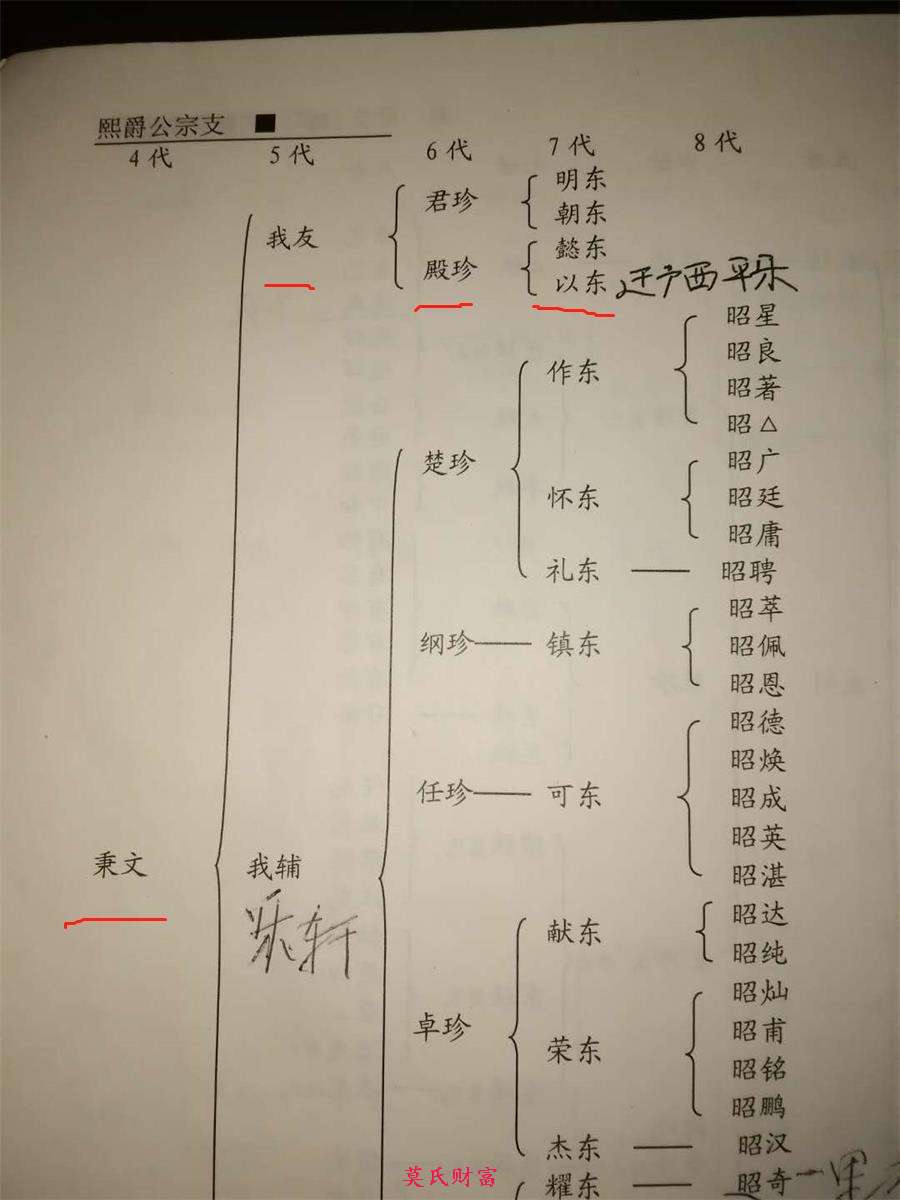 熙爵公宗支
4代 5代 6代 7代 8代
明东
君珍
朝东
我友
懿东
殿珍
以东 迁广西平乐
昭星
昭良
作东
昭著
昭△
楚珍
昭广
怀东 昭廷
昭庸
礼东 昭聘
昭萃
纲珍 镇东 昭佩
昭恩
昭德
昭焕
任珍 可东 昭成
昭英
秉文 我辅
昭湛
轩
昭达
献东
昭纯
昭灿
卓珍
昭甫
荣东
昭铭
昭鹏
杰东 昭汉
耀东 昭奇
莫氏财富